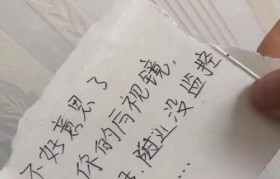 不好意思了
你的后视镜,
没监控
...